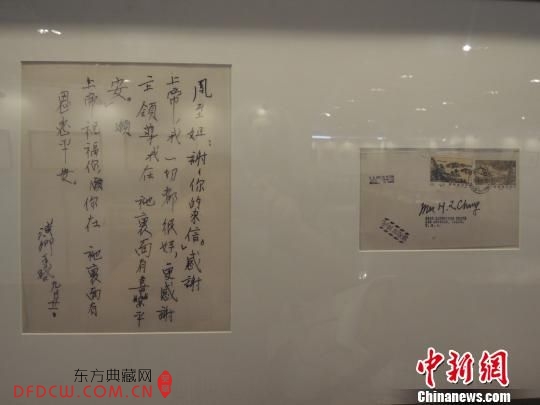 鳳至姐：謝謝你的來信。感謝
上帝，我一切都很好，更感謝
主領導我在祂裏面有喜樂平
安。願
上帝祝福你，願你在祂裏面有
恩惠平安。
漢卿手啟 九月廿一日
Mrs H. L. Chang
U.S.A.
东方典藏网
DFDCW.COM.CN
中新网
Chinanews.com